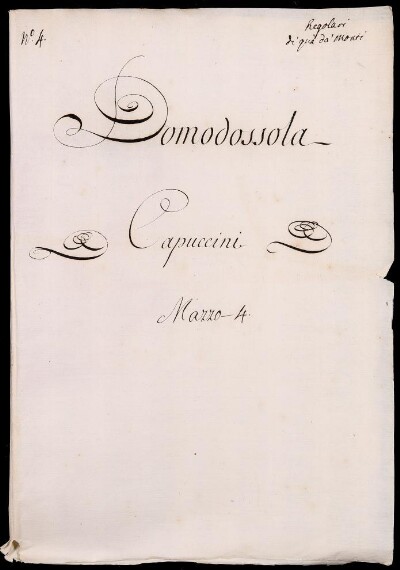 N.º 4.
Regolari
di quà da' Monti
Domodossola
Capuccini.
Mazzo 4.